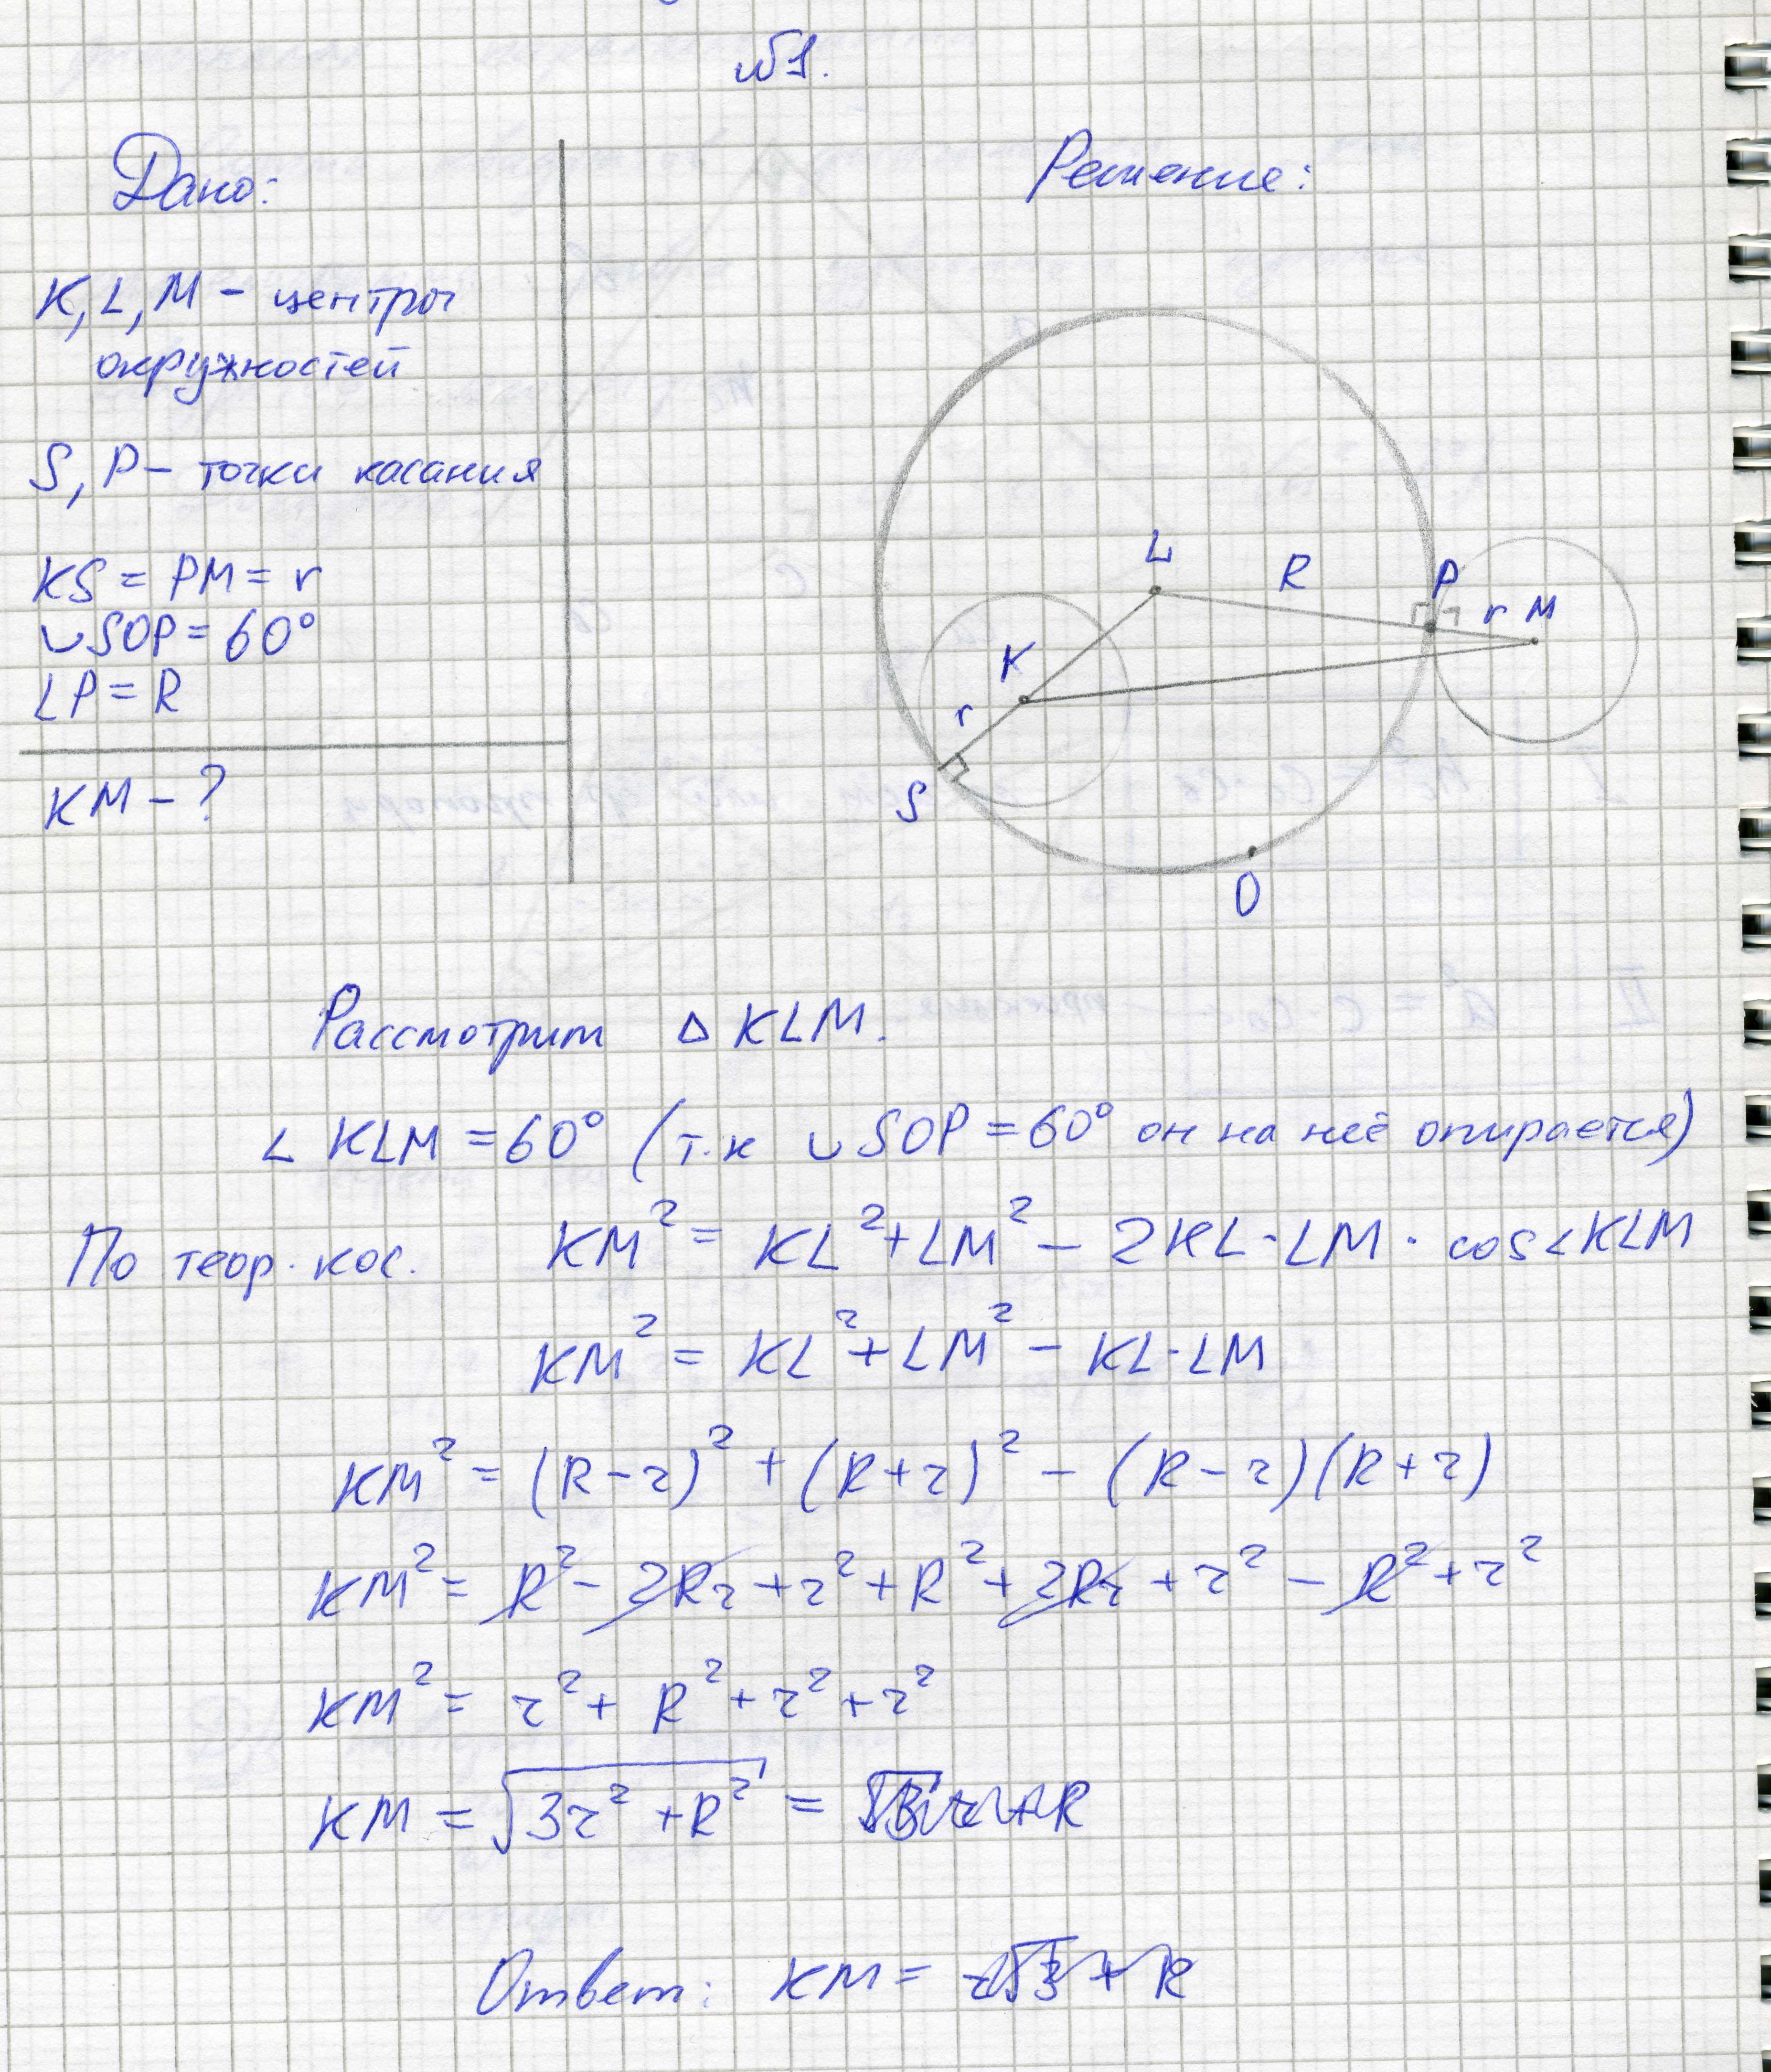 №1.
Дано:
Решение:
K, L, M – центры
окружностей
S, P – точки касания
KS = PM = r
∪SOP = 60°
LP = R
KM – ?
L
R
P
r
M
K
r
S
O
Рассмотрим △ KLM.
∠ KLM = 60° (т.к ∪ SOP = 60° он на неё опирается)
По теор. кос. KM² = KL² + LM² – 2KL · LM · cos∠KLM
KM² = KL² + LM² – KL · LM
KM² = (R – r)² + (R + r)² – (R – r)(R + r)
KM² = R² – 2Rr + r² + R² + 2Rr + r² – R² + r²
KM² = r² + R² + r² + r²
KM = √(3r² + R²) =
Ответ: KM =